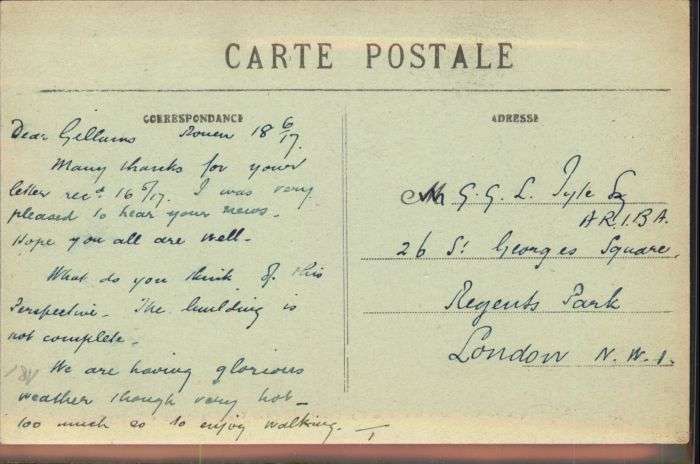 CARTE POSTALE
CORRESPONDANCE
Dear Gillums Rouen 18 6/17.
Many thanks for your
letter recd 16/6/17. I was very
pleased to hear your news.
Hope you all are well-
What do you think of this
Perspective. The building is
not complete.
We are having glorious
weather though very hot-
too much so to enjoy walking.
ADRESSE
G. G. L. Tyte Esq
A.R.I.B.A.
26 St Georges Square,
Regents Park
London N.W.1.